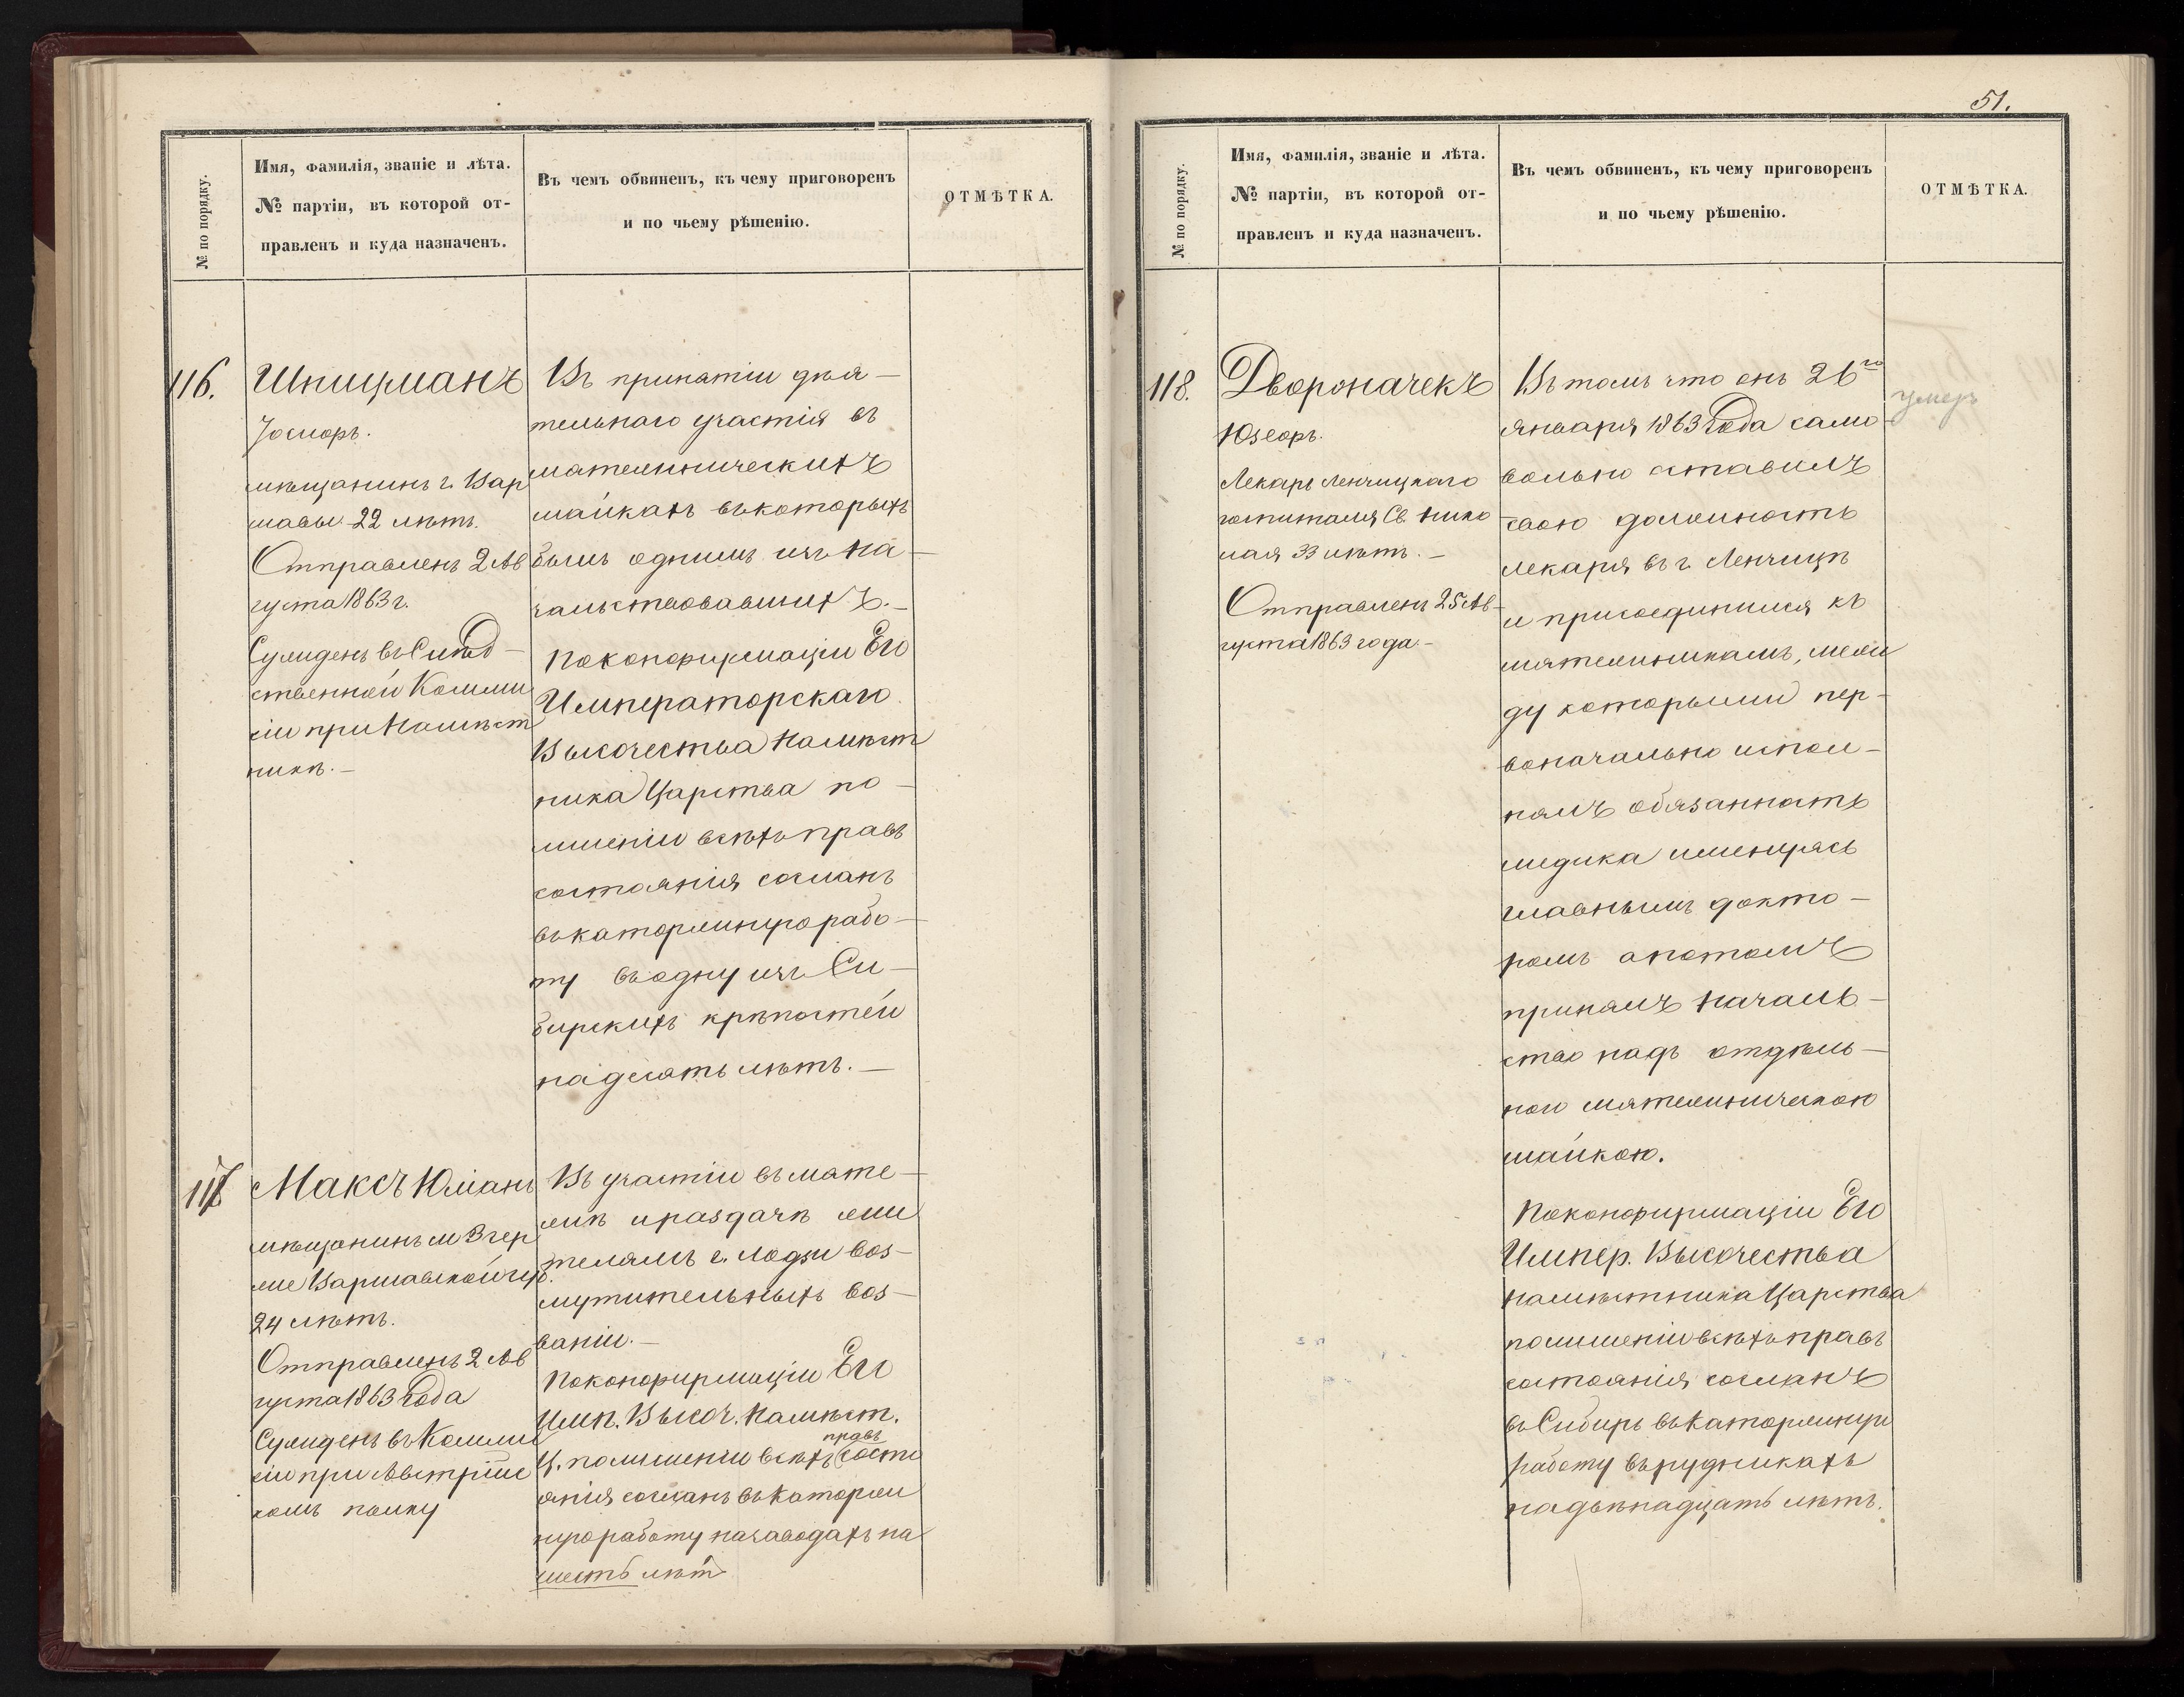 № по порядку.
Имя, фамилія, званіе и лѣта.
№ партіи, въ которой от-
правленъ и куда назначенъ.
Въ чемъ обвиненъ, къ чему приговоренъ
и по чьему рѣшенію.
ОТМѢТКА.
116.
Шпицманъ
Іосифъ.
мѣщанинъ г. Вар
шавы 22 лѣтъ.
Отправленъ 2 Ав
густа 1863 г.
Сужденъ въ Слѣд-
ственной Коммис
сіи при Намѣст
никѣ.—
Въ принятіи дѣя—
тельнаго участія въ
мятежническихъ
шайкахъ въ которыхъ
былъ однимъ изъ на—
чальствовавшихъ.—
По конфирмаціи Его
Императорскаго
Высочества Намѣст
ника Царства по—
лишеніи всѣхъ правъ
состоянія сосланъ
въ каторжную рабо—
ту въ одну изъ Си—
бирскихъ крѣпостей
на десять лѣтъ.—
117
Максъ Юліанъ
мѣщанинъ м. Згер
жа Варшавской губ.
24 лѣтъ.
Отправленъ 2 Ав
густа 1863 года
Сужденъ въ Коммис
сіи при Австрійс
комъ полку
Въ участіи въ мяте—
жѣ и раздачѣ жи
телямъ г. Лодзи воз—
мутительныхъ воз—
званій.—
По конфирмаціи Его
Имп. Высоч. Намѣст.
Ц. по лишеніи всѣхъ правъ состо
янія сосланъ въ каторж
ную работу на заводахъ на
шесть лѣтъ
51.
№ по порядку.
Имя, фамилія, званіе и лѣта.
№ партіи, въ которой от-
правленъ и куда назначенъ.
Въ чемъ обвиненъ, къ чему приговоренъ
и по чьему рѣшенію.
ОТМѢТКА.
118.
Двороначекъ
Юзефъ.
Лекарь Ленчицкаго
госпиталя Св. Нико
лая 33 лѣтъ.—
Отправленъ 25 Ав—
густа 1863 года.—
Въ томъ что онъ 26го
января 1863 года само
вольно оставилъ
свою должность
лекаря въ г. Ленчицѣ
и присоединился къ
мятежникамъ, меж
ду которыми пер—
воначально испол—
нялъ обязанность
медика именуясь
главнымъ докто—
ромъ а потомъ
принялъ началь—
ство надъ отдѣль—
ною мятежническою
шайкою.
По конфирмаціи Его
Импер. Высочества
Намѣстника Царства
по лишеніи всѣхъ правъ
состоянія сосланъ
въ Сибирь въ каторжную
работу въ рудникахъ
на двѣнадцать лѣтъ.
умеръ